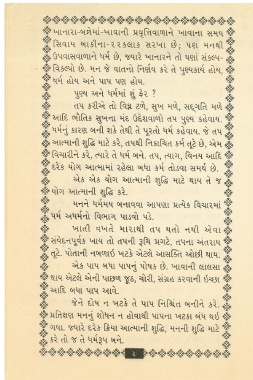 ખાનારા-બન્નેમાં-ખાવાની પ્રવૃત્તિવાળાને ખાવાના સમય
(સિવાય બાકીના-૨૨કલાક સરખા છે; પણ મનથી
ઉપવાસવાળાને ધર્મ છે, જ્યારે ખાનારને તો ઘણાં સંકલ્પ-
વિકલ્પો છે. મન જે વાતનો નિર્ણય કરે તે પુણ્યકાર્ય હોય,
ધર્મ હોય અને પાપ પણ હોય.
પુણ્ય અને ધર્મમાં શું ફેર ?
તપ કરીએ તો વિઘ્ન ટળે, સુખ મળે, સદ્ગતિ મળે
આદિ ભૌતિક સુખના મંદ ઉદ્દેશવાળો તપ પુણ્ય કહેવાય.
ધર્મનું કારણ બની શકે તેથી તે પૂરતો ધર્મ કહેવાય. જે તપ
આત્માની શુદ્ધિ માટે કરે, તપથી નિકાચિત કર્મ તુટે છે, એમ
વિચારીને કરે, ત્યારે તે ધર્મ બને. તપ, ત્યાગ, વિનય આદિ
દરેક યોગ આત્મામાં રહેલા બધા કર્મ તોડવા સમર્થ છે.
એક એક યોગ આત્માની શુદ્ધિ માટે થાય તે જ
યોગ આત્માની શુદ્ધિ કરે.
મનને ધર્મમય બનાવવા આપણા પ્રત્યેક વિચારમાં
ધર્મ અધર્મનો વિભાગ પાડવો પડે.
ખાતી વખતે મારાથી તપ થતો નથી એવા
સંવેદનપૂર્વક ખાય તો તપની રૂચિ પ્રગટે. તપના અંતરાય
તુટે. પોતાની નબળાઈ ખટકે એટલે આસક્તિ ઓછી થાય.
એક પાપ બધા પાપનું પોષક છે. ખાવાની લાલસા
થાય એટલે એની પાછળ જૂઠ, ચોરી, સંગ્રહ કરવાની ઈચ્છા
આદિ બધા પાપ આવે.
જેને દોષ ન ખટકે તે પાપ નિશ્ચિંત બનીને કરે.
પ્રતિક્ષણ મનનું શોધન ન હોવાથી પાપના ખટકા બંધ થઈ
ગયા. જ્યારે દરેક ક્રિયા આત્માની શુદ્ધિ, મનની શુદ્ધિ માટે
કરે તો જ તે ધર્મરૂપ બને.